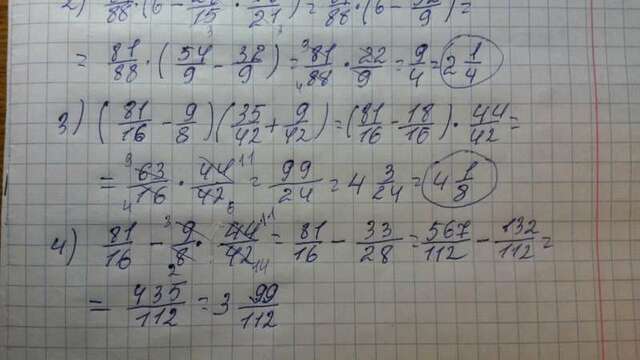 2) 81/88 · (6 - 20/15 · 27) = 81/88 · (6 - 32/9) =
= 81/88 · (54/9 - 32/9) = 81/88 · 22/9 = 9/4 = 2 1/4
3) (81/16 - 9/8)(35/42 + 9/42) = (81/16 - 18/16) · 44/42 =
= 63/16 · 44/42 = 99/24 = 4 3/24 = 4 1/8
4) 81/16 - 9/8 · 44/42 = 81/16 - 33/28 = 567/112 - 132/112 =
= 435/112 = 3 99/112